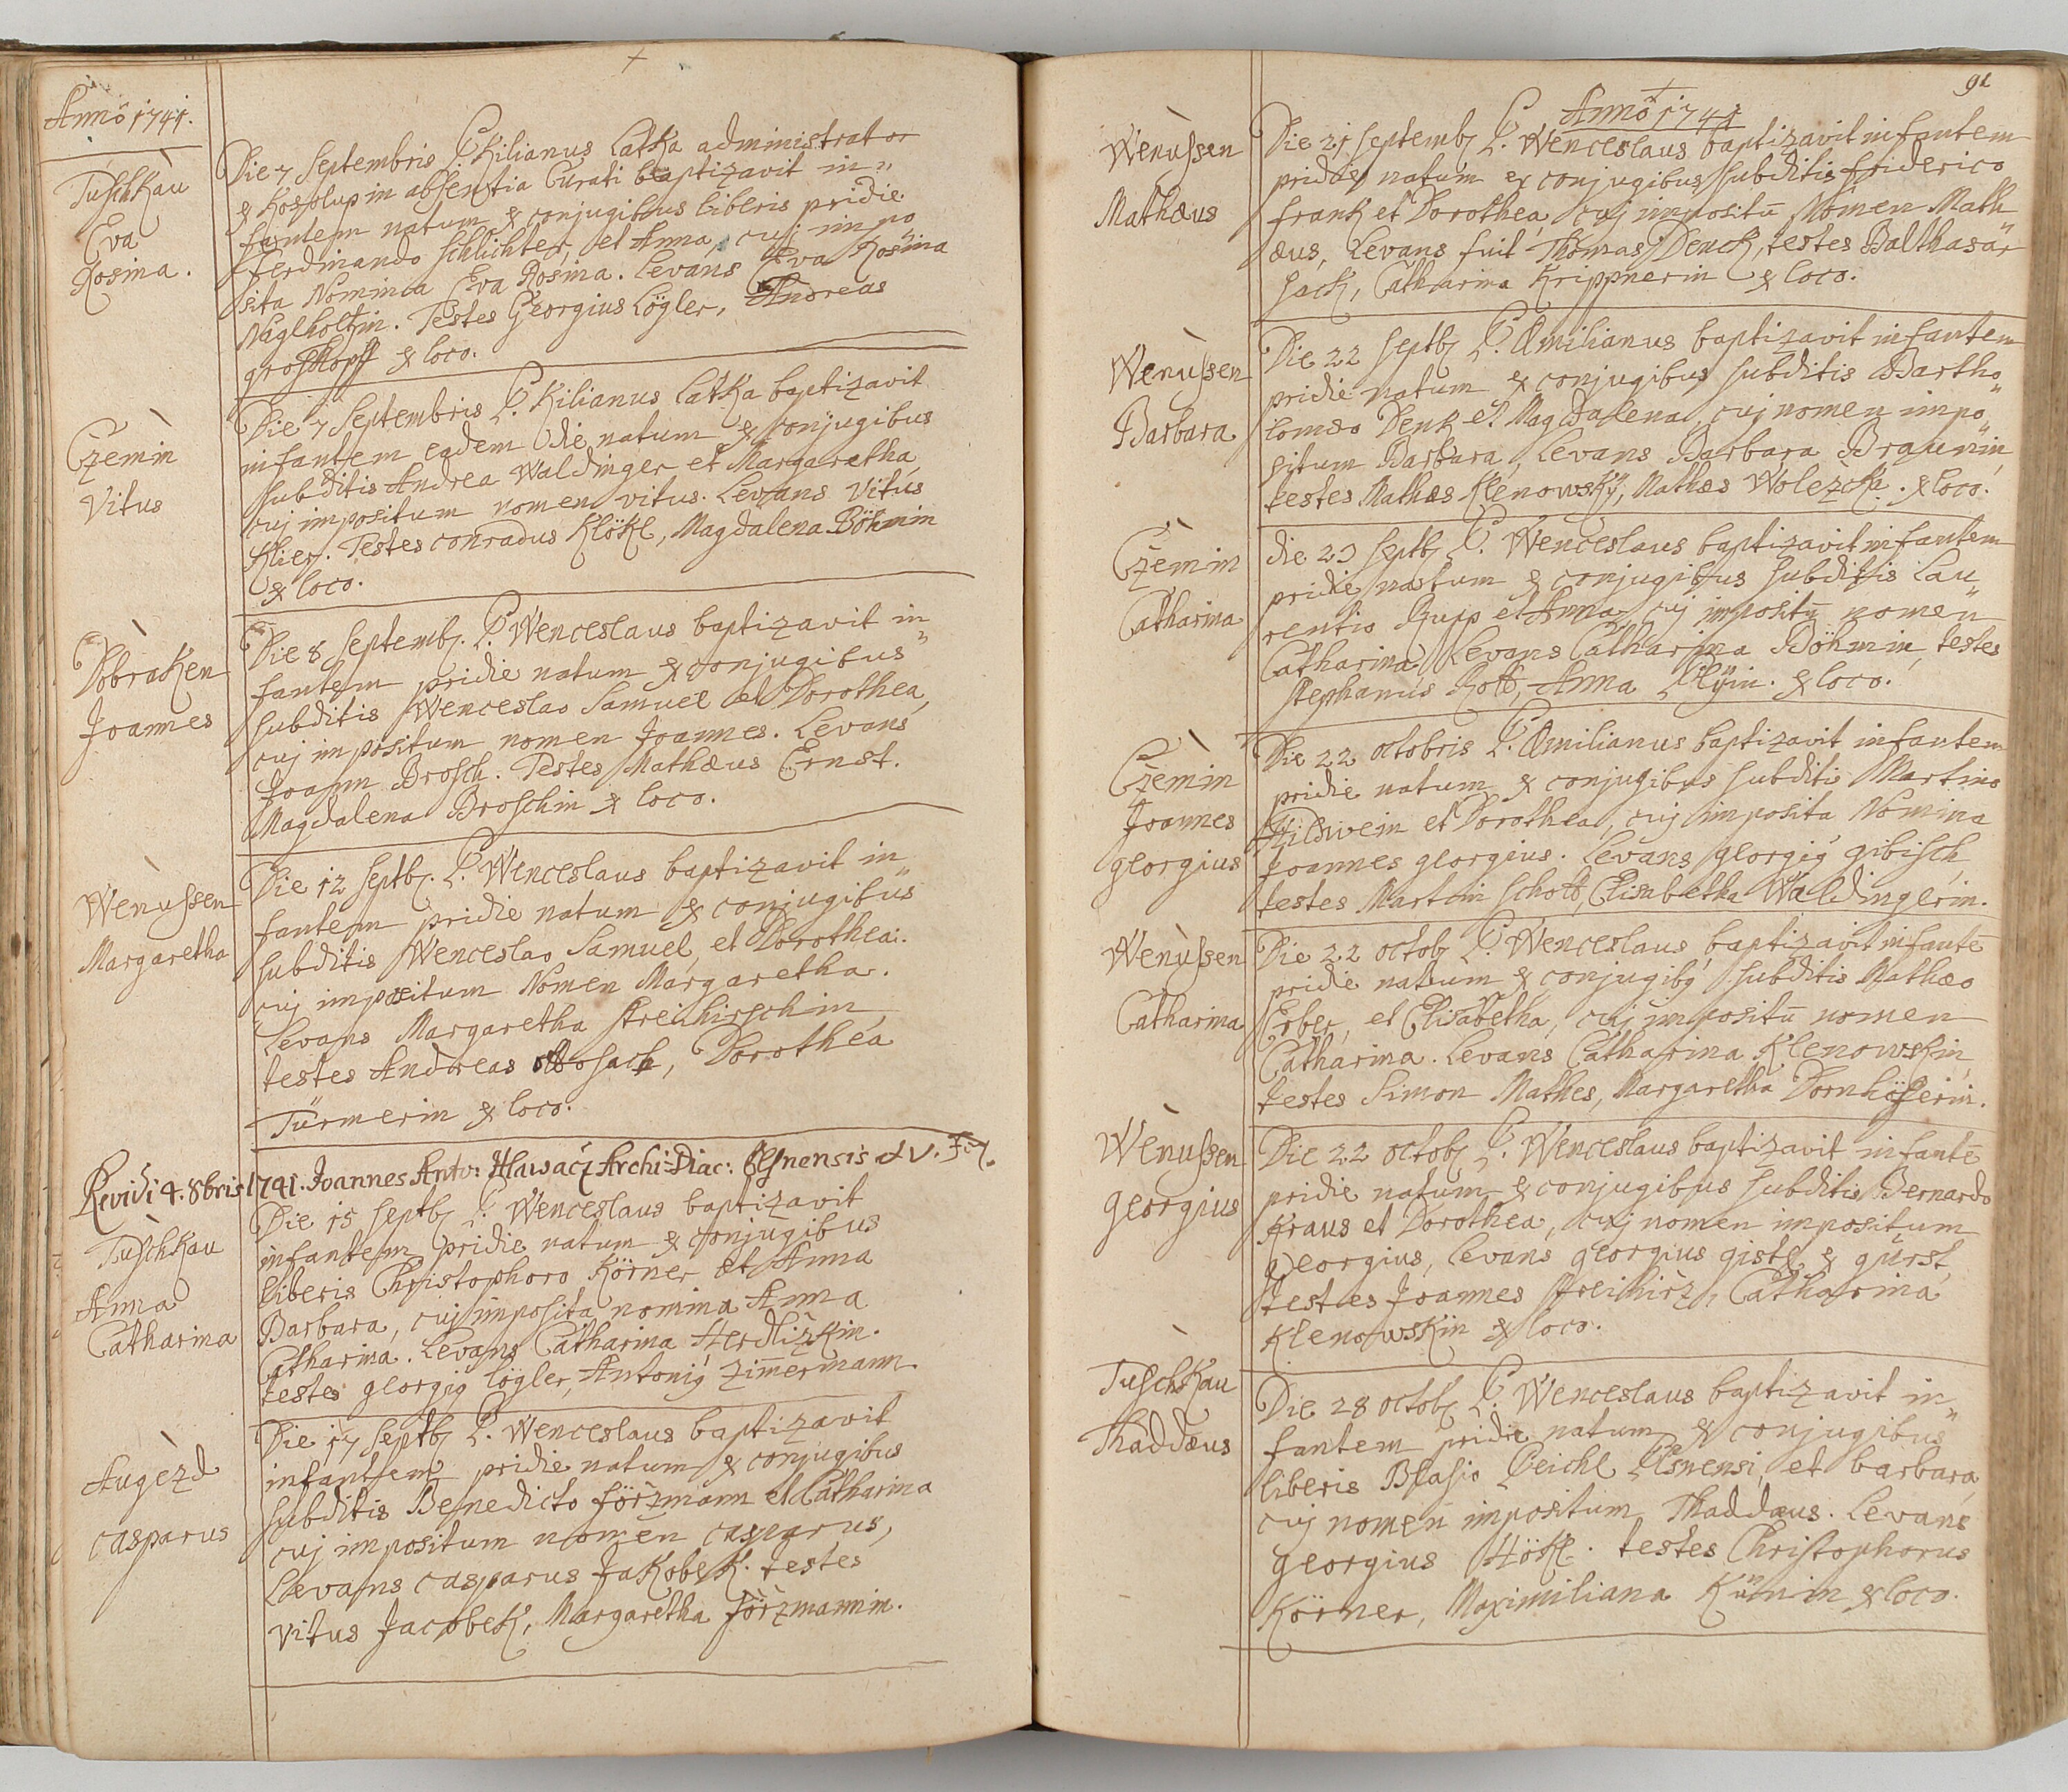 Anno 1741.
Tuschkau
Eva
Rosina.
Die 7 Septembris P. Kilianus Latka administrator
ex Kosolup in absentia Curati baptizavit in„
fantem natum ex conjugibus liberis pridie
Ferdinando Schlichter, et Anna, cuj impo„
sita Nomina Eva Rosina. Levans Eva Rosina
Naglholtzin. Testes Georgius Lögler, Andreas
groskopff ex loco.
Czemin
Vitus
Die 7 Septembris P. Kilianus Latka baptizavit
infantem eadem die natum ex conjugibus
subditis Andrea Waldinger et Margaretha
cuj impositum nomen vitus. Levans Vitus
Klier. Testes conradus Klökl, Magdalena Böhmin
ex loco.
Dobraken
Joannes
Die 8 Septemb. P. Wenceslaus baptizavit in„
fantem pridie natum ex conjugibus
subditis Wenceslao Samuel et Dorothea,
cuj impositum nomen Joannes. Levans
Joann Brosch. Testes Mathæus Ernst.
Magdalena Broschin ex loco.
Wenussen
Margaretha
Die 12 Septb. P. Wenceslaus baptizavit in„
fantem pridie natum ex conjugibus
subditis Wenceslao Samuel, et Dorothea.
cuj impositum Nomen Margaretha.
Levans Margaretha Streihirschin,
testes Andreas Sack, Dorothea
Türmerin ex loco.
Revidi 4. 8bris 1741. Joannes Anto: Hlawacz Archi-Diac: Plsnensis
Tuschkau
Anna
Catharina
Die 15 Septb. P. Wenceslaus baptizavit
infantem pridie natum ex conjugibus
liberis Christophoro Körner et Anna
Barbara, cuj imposita nomina Anna
Catharina. Levans Catharina Herdlizkin.
testes georgig lögler, Antonig zimermann.
Augezd
casparus
Die 17 Septb. P. Wenceslaus baptizavit
infantem pridie natum ex conjugibus
subditis Benedicto förzmann et Catharina
cuj impositum nomen casparus,
Levans casparus Jakobek. testes
vitus Jacobek, Margaretha förzmannin.
91
Anno 1741
Wenussen
Mathæus
Die 21 Septemb. P. Wenceslaus baptizavit infantem
pridie natum ex conjugibus subditis friderico
frank et Dorothea, cuj impositū Nomen Math„
æus, Levans fuit Thomas Denck, testes Balthasar
Sack, Catharina Krippnerin ex loco.
Wenussen
Barbara
Die 22 Septb. P. Æmilianus baptizavit infantem
pridie natum ex conjugibus subditis Bartho„
lomæo Denk et Magdalena, cuj nomen impo„
situm Barbara, Levans Barbara Braunin
testes Mathæs Klenowskÿ, Mathæs Wolezcka. ex loco.
Czemin
Catharina
die 23 Septb. P. Wenceslaus baptizavit infantem
pridie natum ex conjugibus subditis Lau„
rentio Rupp et Anna, cuj impositū nomen
Catharina, Levans Catharina Böhmin, testes
Stephanus Rott, Anna Lilÿin. ex loco.
Czemin
Joannes
georgius
Die 22 octobris P. Æmilianus baptizavit infantem
pridie natum ex conjugibus subditis Martino
Hildwein et Dorothea, cuj imposita Nomina
Joannes georgius. Levans georgig gibisch,
testes Martin Schott, Elisabetha Waldingerin.
Wenussen
Catharina
Die 22 octob. P. Wenceslaus baptizavit infantē
pridie natum ex conjugibg subditis Mathæo
Erber, et Elisabetha, cuj impositū nomen
Catharina. Levans Catharina Klenowskin,
testes Simon Mathes, Margaretha Dornhöferin.
Wenussen
georgius
Die 22 octob. P. Wenceslaus baptizavit infantē
pridie natum ex conjugibus subditis Bernardo
Kraus et Dorothea, cuj nomen impositum
georgius, Levans georgius gistl ex gürst,
testes Joannes Streihirz, Catharina
Klenowskin ex loco.
Tuschkau
Thaddæus
Die 28 octob. P. Wenceslaus baptizavit in„
fantem pridie natum ex conjugibus
liberis Blasio Peichl Plsnensi, et barbara,
cuj nomen impositum Thaddæus. Levans
georgius Hökl. testes Christophorus
Körner, Maximiliana Kunin ex loco.